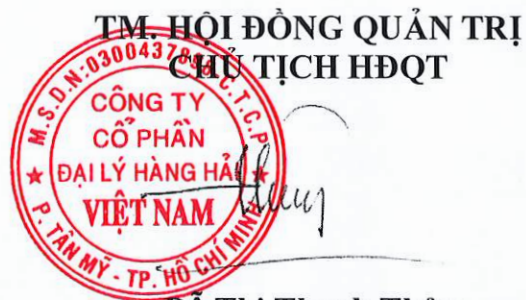 TM. HỘI ĐỒNG QUẢN TRỊ
CHỦ TỊCH HĐQT
M.S.D.N:0300437898 C.T.C.P
CÔNG TY
CỔ PHẦN
ĐẠI LÝ HÀNG HẢI
VIỆT NAM
P. TÂN MỸ - TP. HỒ CHÍ MINH